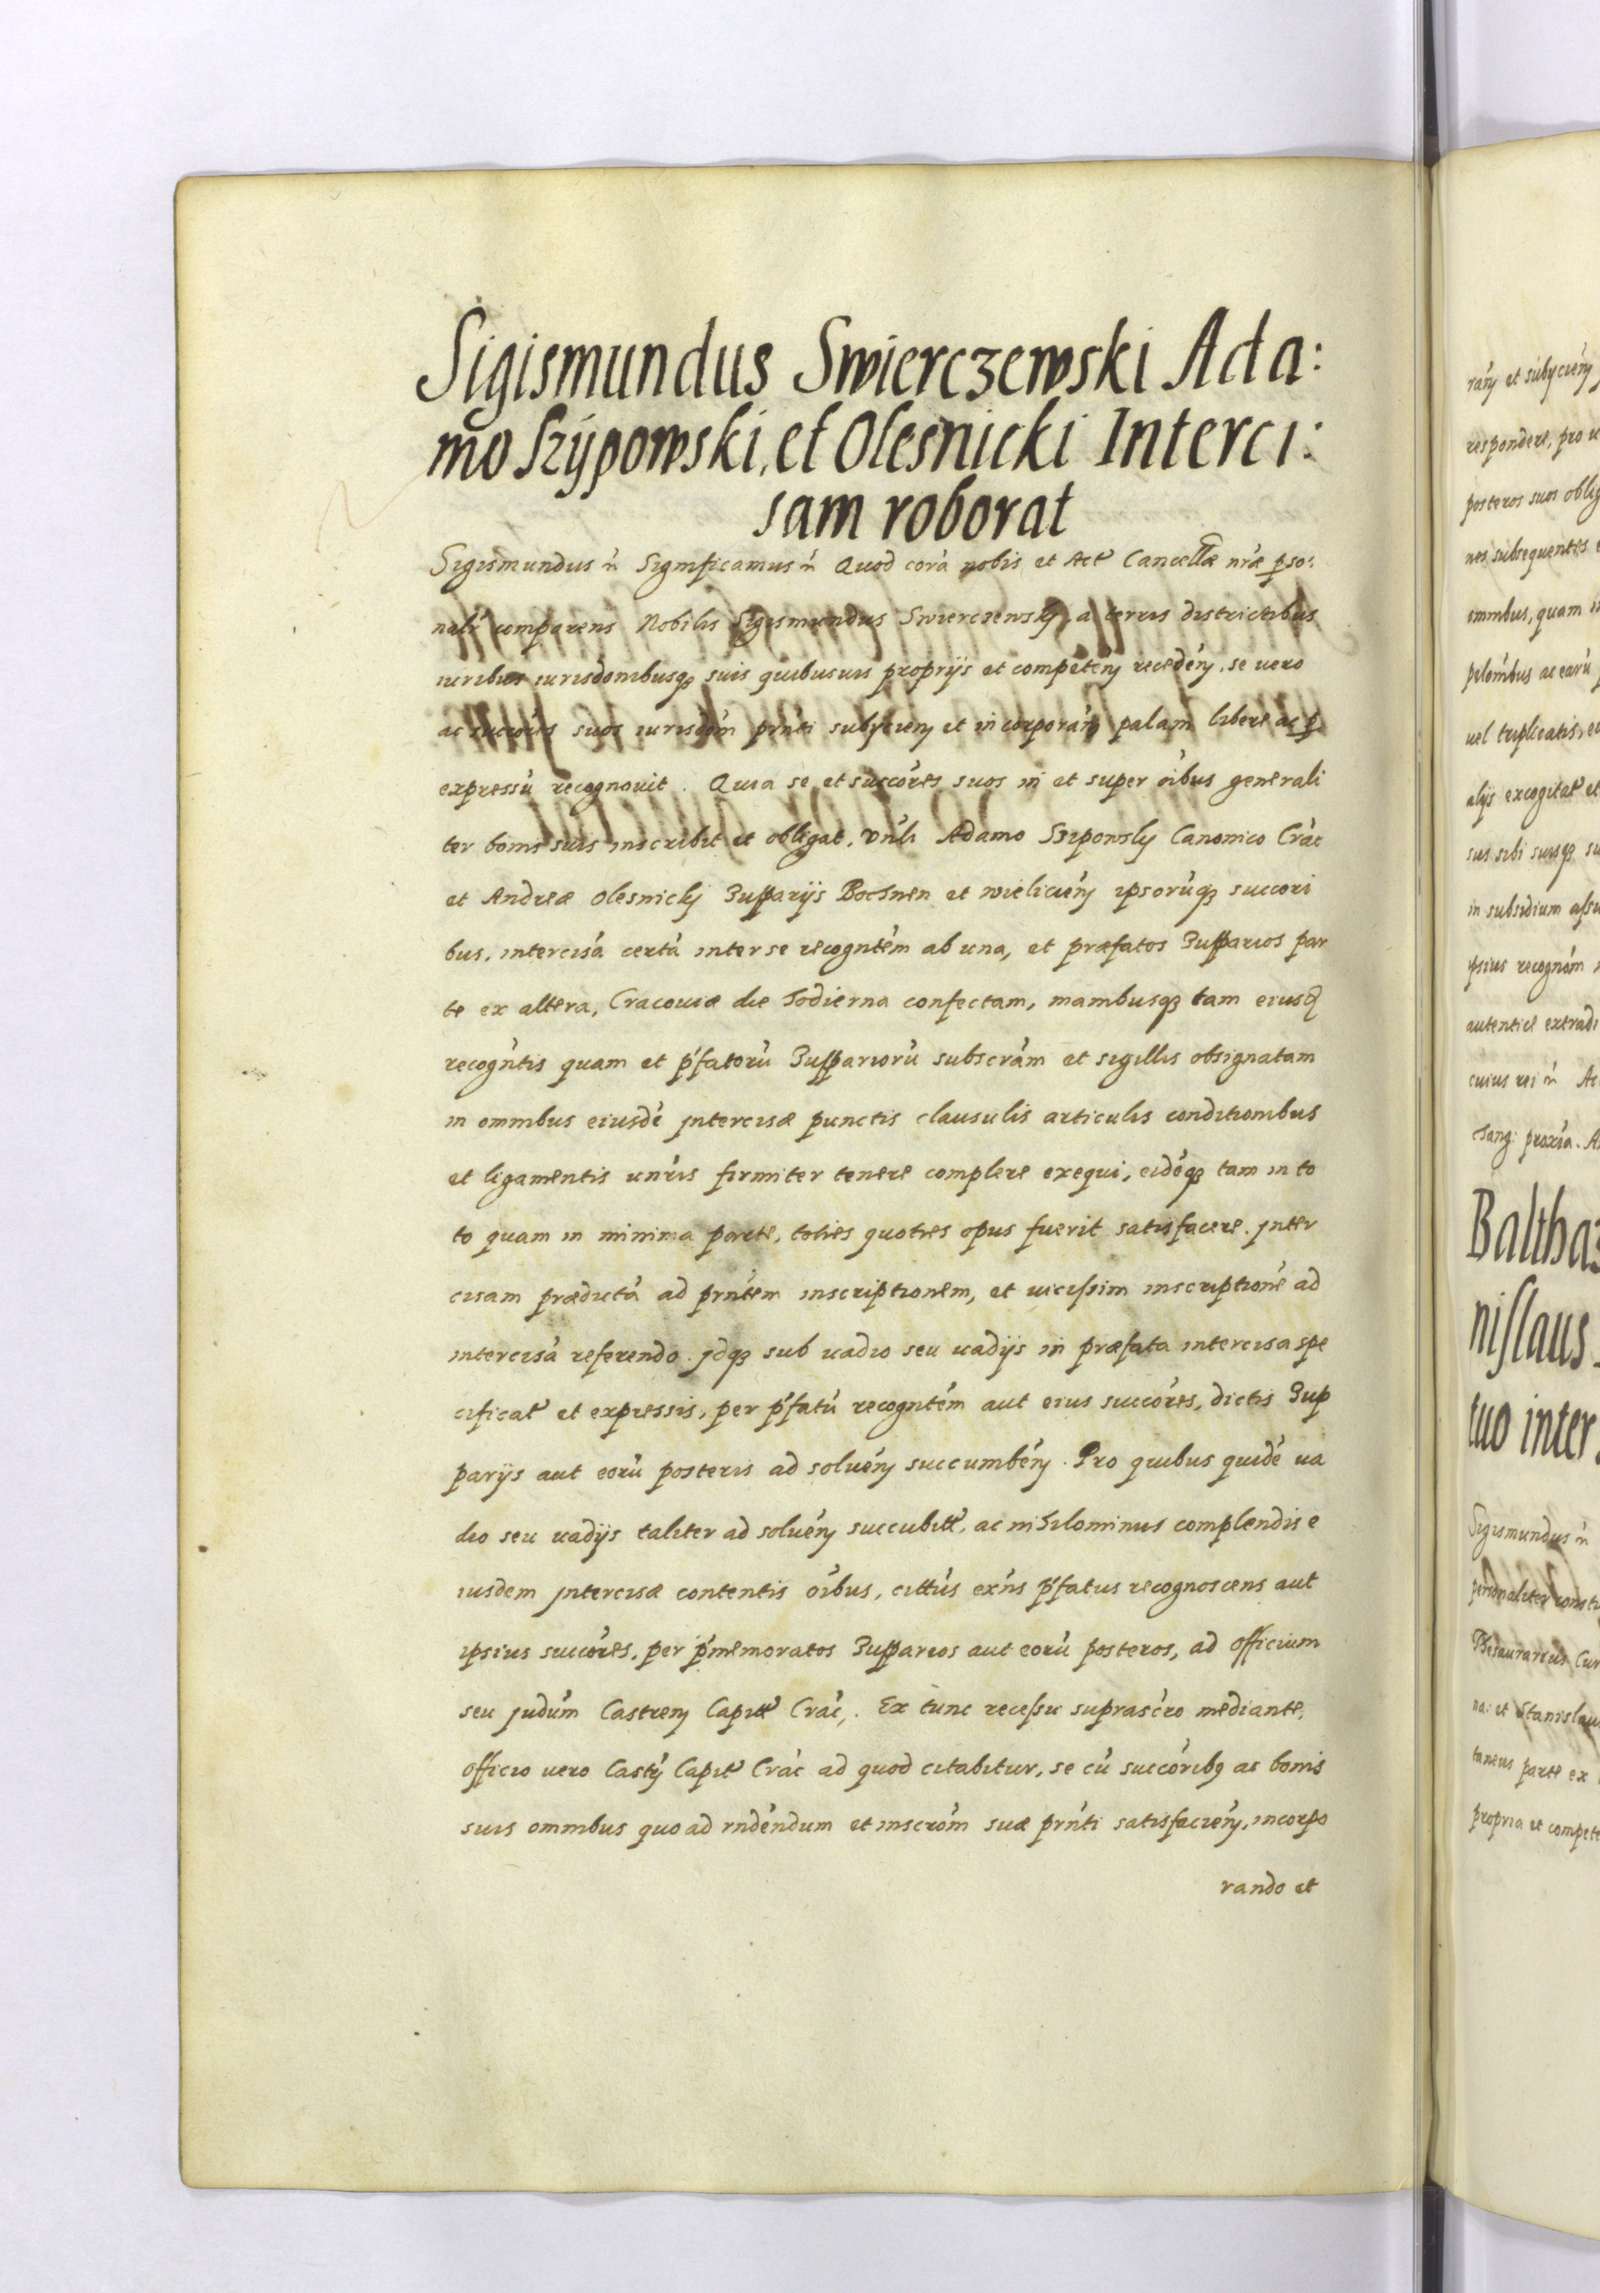 Sigismundus Swierczewski Ada:
mo Szÿpowski, et Olesnicki Interci:
sam roborat
Sigismundus ñ Significamus ñ Quod corá nobis et Act Cancellæ nræ pso:
nalr comparens Nobilis Sigismundus Swierczewsky, a terris districtibus
iuribus iurisdonibusq suis quibusuis proprijs et competén recedén, se uero
ac succores suos iurisdom prnti subycien et incorporán palam libere ac p
expressú recognouit. Quia se et succóres suos in et super oibus generali
ter bonis suis inscribit et obligat, vnli Adamo Szipowsky Canonico Crac
et Andreæ Olesnicky Zupparijs Bochnen et wielicién ipsorúq succori
bus, intercisá certá inter se recogntém ab una, et præfatos Zupparios par
te ex altera, Cracouiæ die hodierna confectam, manibusq tam eiusd
recogntis quam et pfatorú Zuppariorú subscrám et sigillis obsignatam
in omnibus eiusdé intercisæ punctis clausulis articulis conditionibus
et ligamentis unris firmiter tenere complere exequi, eidéq tam in to
to quam in minima parte, toties quoties opus fuerit satisfacere. jnter
cisam prædictá ad prntem inscriptionem, et uicissim inscriptioné ad
intercisá referendo. jdq sub uadio seu uadijs in præfata intercisa spe
cificat et expressis, per pfatú recogntém aut eius succóres, dictis Zup
parijs aut eorú posteris ad soluén succumbén. Pro quibus quidé ua
dio seu uadijs taliter ad soluén succubitt, ac nihilominus complendis e
iusdem jntercisæ contentis oibus, cittús exns pfatus recognoscens aut
ipsius succóres, per pmemoratos Zupparios aut eorú posteros, ad officium
seu judúm Castren Capitt Crác,. Ex tunc recessu suprascro mediante,
officio uero Castr Capit Crác ad quod citabitur, se cú succóribq ac bonis
suis omnibus quo ad rndéndum et inscrom suæ prnti satisfacién, incorpo
rando et
rán et subycién
respondere, pro
posteros suos oblig
nes subsequentes
omnibus, quam
ac earú
uel triplicatis,
alijs excogitat et
sus sibi suisq su
in subsidium assu
ipsius recognóm
autenticè extradi
cuius rei ñ
Sang: proxia.
Balthaz
nislaus
tuo inter
Sigismundus ñ
personaliter consti
Thesaurarius Cur
na: et Stanislau
taneus parte ex
propria et compete